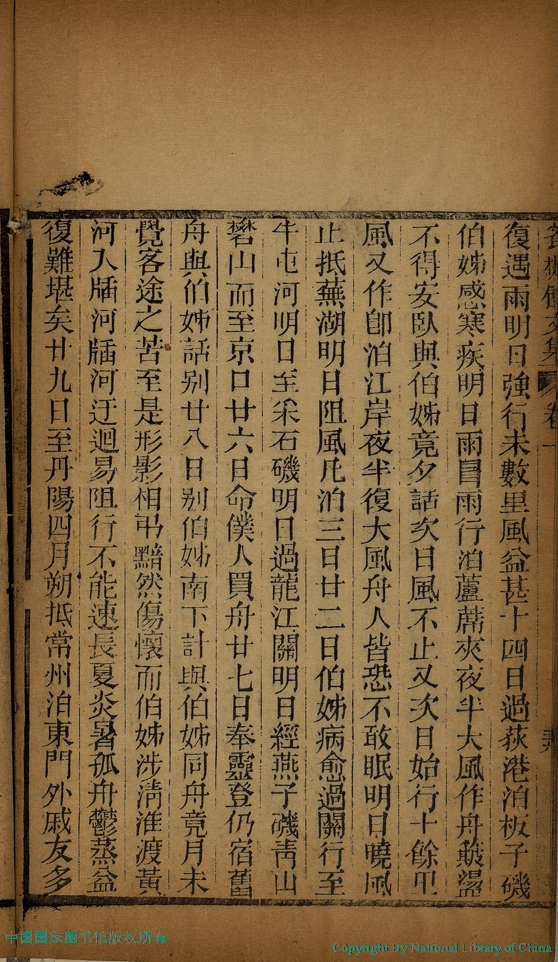 復遇雨明日強行未數里風益甚十四日過荻港泊板子磯
伯姊感寒疾明日雨冒雨行泊蘆蓆夾夜半大風作舟簸盪
不得安臥與伯姊竟夕話次日風不止又次日始行十餘里
風又作卽泊江岸夜半復大風舟人皆恐不敢眠明日曉風
止抵蕪湖明日阻風凡泊三日廿二日伯姊病愈過關行至
牛屯河明日至采石磯明日過龍江關明日經燕子磯靑山
礬山而至京口廿六日命僕人買舟廿七日奉靈登仍宿舊
舟與伯姊話別廿八日別伯姊南下計與伯姊同舟竟月未
覺客途之苦至是形影相弔黯然傷懷而伯姊涉淸淮渡黃
河入牐河牐河迂迴易阻行不能速長夏炎暑孤舟鬱蒸益
復難堪矣廿九日至丹陽四月朔抵常州泊東門外戚友多
中国国家图书馆版权所有
Copyright By National Library of China